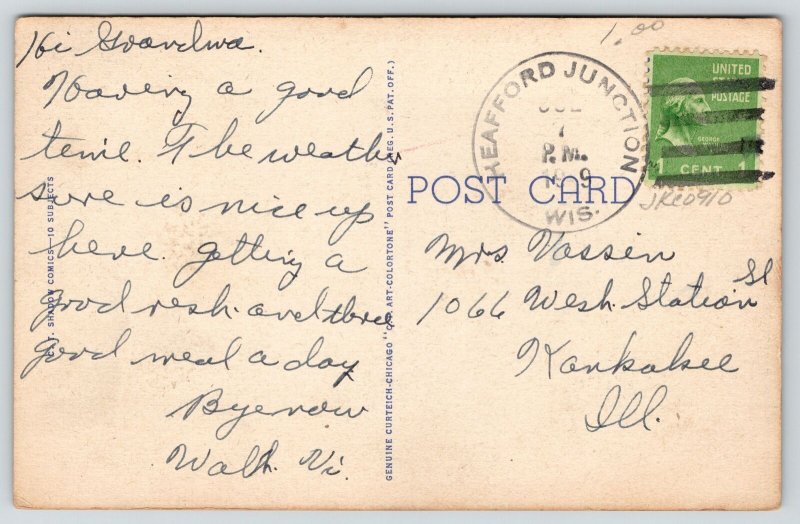 Hi Grandma.
Having a good
time. The weather
sure is nice up
here. getting a
good rest. and three
good meal a day
Byenow
Walt. Vi.
C.T. SHADOW COMICS—10 SUBJECTS
GENUINE CURTEICH-CHICAGO "C.T. ART-COLORTONE" POST CARD (REG. U.S. PAT. OFF.)
POST CARD
HEAFFORD JUNCTION
7
P.M.
WIS.
1.00
UNITED
STATES
POSTAGE
1 CENT 1
JRE0910
Mrs Vassen
1066 West. Station St
Kankakee
Ill.